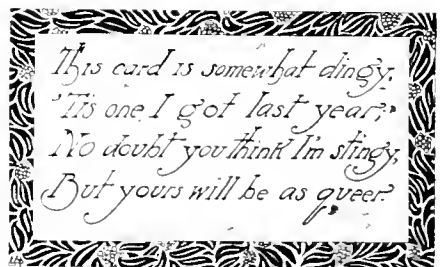 This card is somewhat dingy;
'Tis one I got last year;
No doubt you think I'm stingy,
But yours will be as queer.